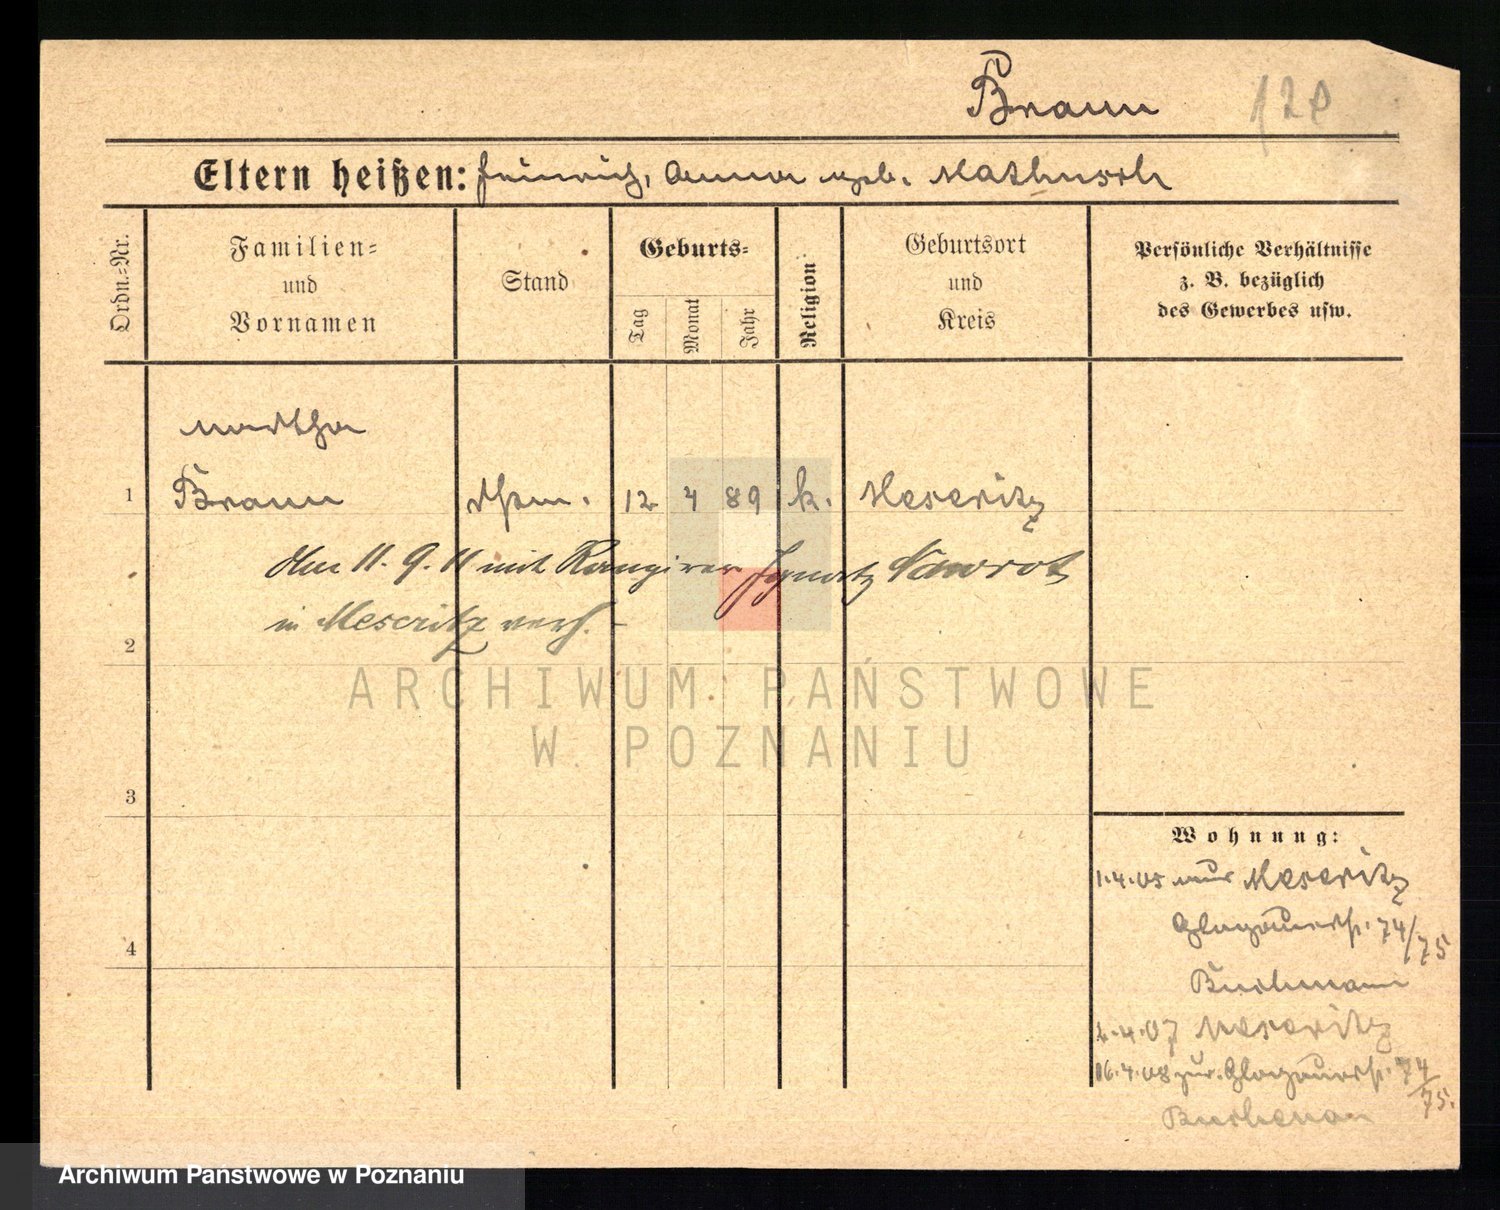 Braun 120
Eltern heißen: Heinrich, Anna geb. Mathusch
Ordn.=Nr.
Familien=
und
Vornamen
Stand
Geburts=
Tag
Monat
Jahr
Religion
Geburtsort
und
Kreis
Persönliche Verhältnisse
z. B. bezüglich
des Gewerbes usw.
Martha
1 Braun 12 4 89 k. Meseritz
den 11. 9. 11 mit Rangirer Ignatz Nawrot
in Meseritz verh.
2
ARCHIWUM PAŃSTWOWE
W POZNANIU
3
Wohnung:
1.4.05 Meseritz
Glogauerstr. 74/75
4
Buchmann
2.4.07 Meseritz
16.4.08 zur. Glogauerstr. 74/75.
Archiwum Państwowe w Poznaniu